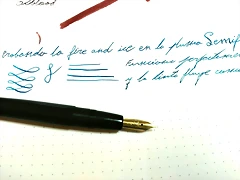 probando la fire and ice en la pluma Semif
Funciona perfectamen
y la tinta fluye